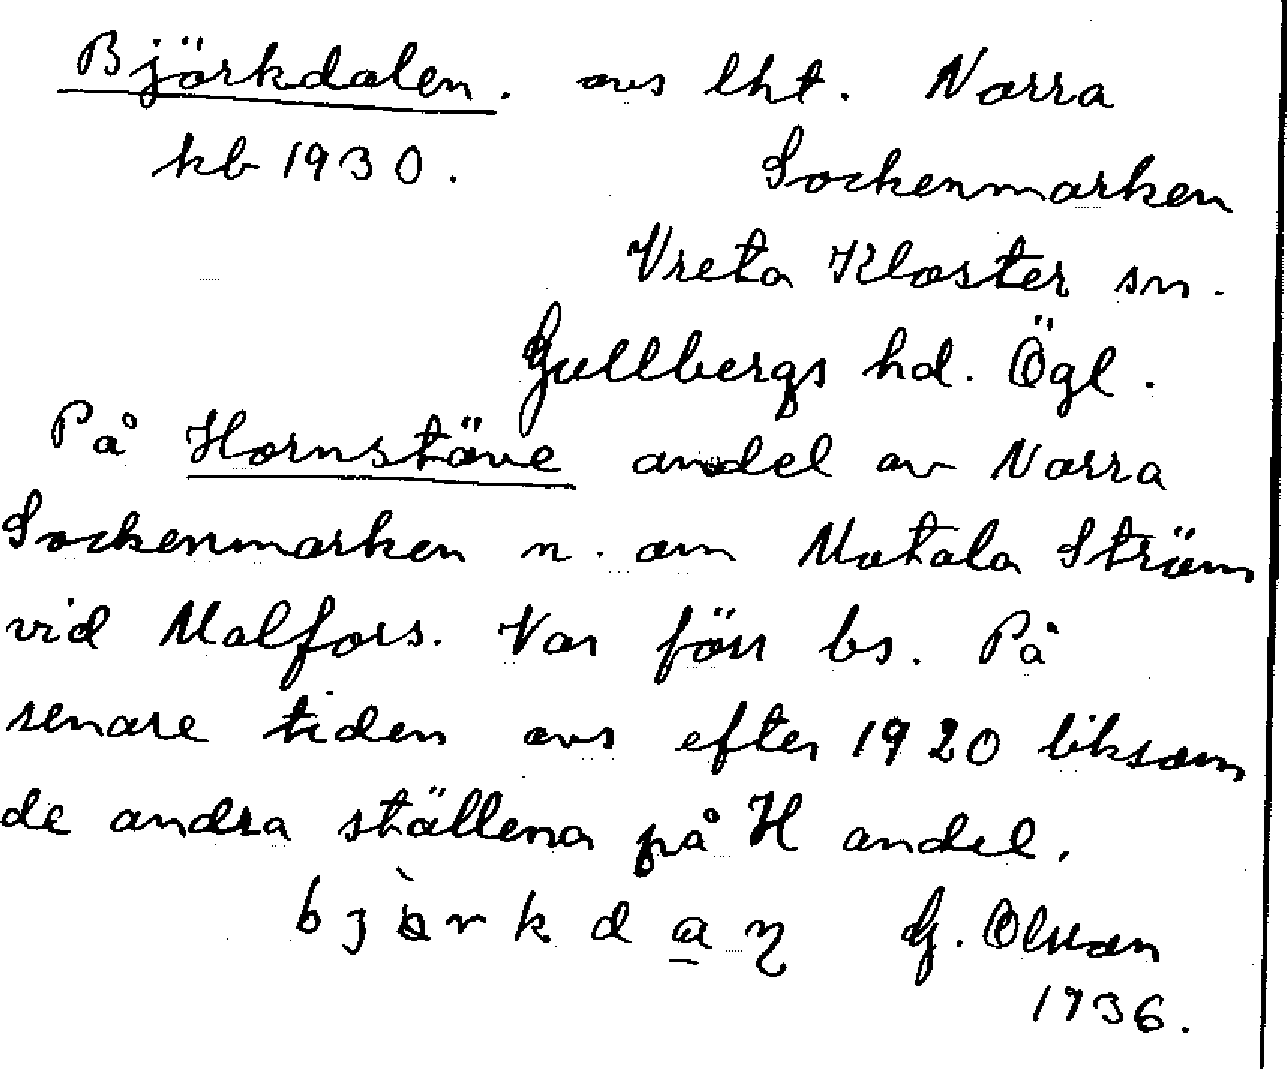 Björkdalen. avs lht. Norra
kb 1930. Sockenmarken
Vreta Kloster sn.
Gullbergs hd. Ögl.
På Hornstäve andel av Norra
Sockenmarken n. om Motala Ström
vid Malfors. Var förr bs. På
senare tiden avs efter 1920 liksom
de andra ställena på H andel.
G. Olsson
1936.